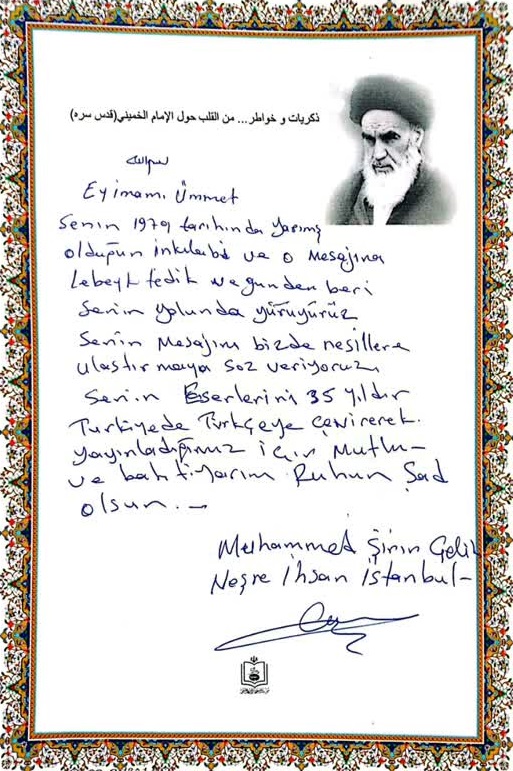 ذكريات و خواطر ... من القلب حول الإمام الخميني(قدس سره)
بسم الله
Ey imamı Ümmet
Senin 1979 tarihinda yapmış
olduğun inkılabı ve o Mesajına
Lebeyk dedik ve gunden beri
Senin yolunda yürüyürüz
Senin Mesajını bizde nesillere
ulaştırmaya söz veriyoruz
Senin Eserlerini 35 yıldır
Turkiyede Türkçeye çevirerek
yayınladığımız için Mutlu-
ve bahtiyarım Ruhun Şad
olsun.-
Muhammed Şirin Çelik
Neşre ihsan istanbul-